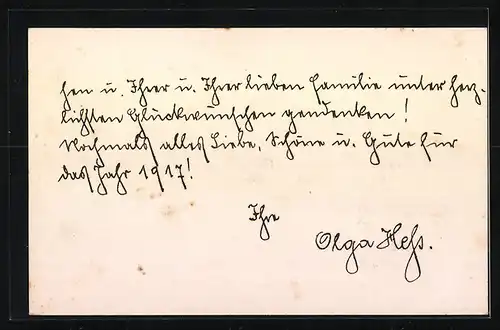 hen u. Ihrer u. Ihrer lieben Familie unter herz-
lichsten Glückwünschen gendenken!
Nochmals alles Liebe, Schöne u. Gute für
das Jahr 1917!
Ihre
Olga Heß.